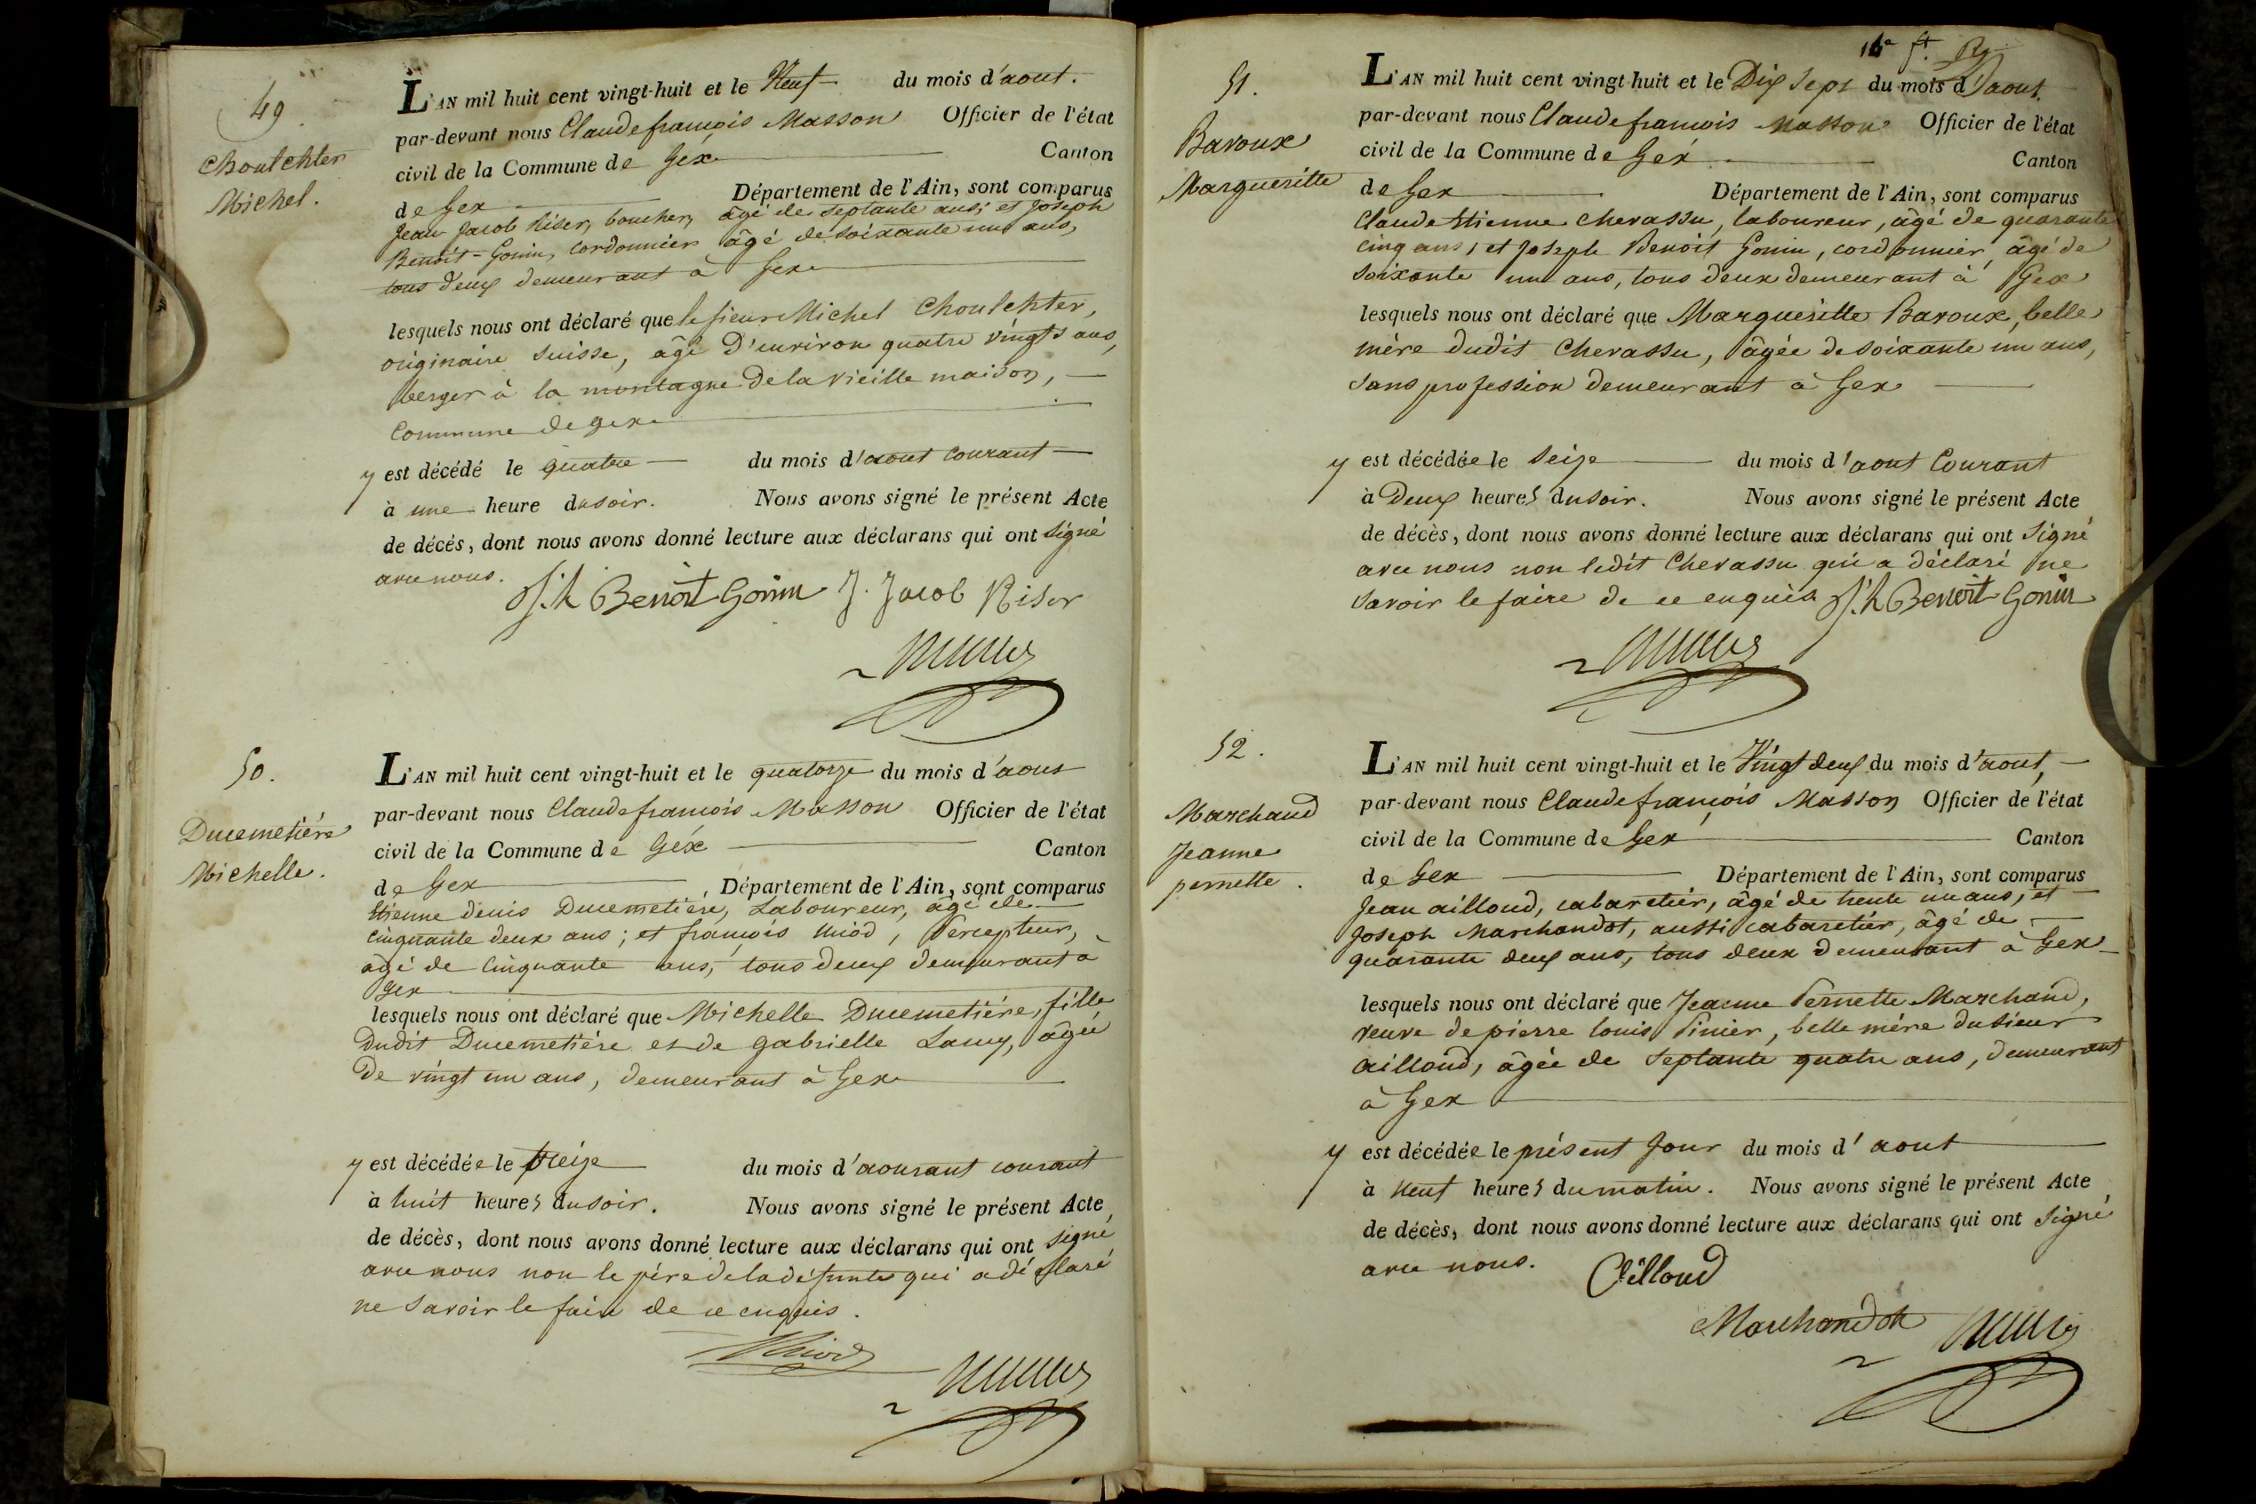 49.
Choulchter
Michel.
L'AN mil huit cent vingt-huit et le Neuf du mois d'aout.
par-devant nous Claude françois Masson Officier de l'état
civil de la Commune de Gex Canton
de Gex Département de l'Ain, sont comparus
Jean Jacob Riser, boucher, âgé de septante ans; et Joseph
Benoit-Gonin, cordonnier âgé de soixante un ans,
tous deux demeurant à Gex
lesquels nous ont déclaré que le sieur Michel Choulchter,
originaire Suisse, âgé d'environ quatre vingts ans,
berger à la montagne de la vieille maison,
Commune de Gex
y est décédé le quatre du mois d'aout courant
à une heure du soir. Nous avons signé le présent Acte
de décés, dont nous avons donné lecture aux déclarans qui ont signé
avec nous.
J.h Benoit Gonin J. Jacob Riser
50.
Ducemetiére
Michelle.
L'AN mil huit cent vingt-huit et le quatorze du mois d'aout
par-devant nous Claude françois Masson Officier de l'état
civil de la Commune de Géx Canton
de Gex, Département de l'Ain, sont comparus
Etienne denis Ducemetiére, Laboureur, âgé de
cinquante deux ans; et françois Miod, Percepteur,
âgé de Cinquante ans, tous deux demeurant à
Gex
lesquels nous ont déclaré que Michelle Ducemetiére, fille
dudit Ducemetiére et de gabrielle Lamy, âgée
de vingt un ans, demeurant à Gex
y est décédée le treize du mois d'aourant courant
à huit heures du soir. Nous avons signé le présent Acte
de décès, dont nous avons donné lecture aux déclarans qui ont signé
avec nous non le pére de la défunte qui a déclaré
ne savoir le faire de ce enquis.
Miod
51.
Baroux
Marguesitte
L'AN mil huit cent vingt-huit et le Dix sept du mois d'aout.
par-devant nous Claude francois Masson Officier de l'état
civil de la Commune de Gex Canton
de Gex Département de l'Ain, sont comparus
Claude Etienne Chevassu, laboureur, âgé de quarante
cinq ans, et Joseph Benoit Gonin, cordonnier, âgé de
soixante un ans, tous deux demeurant à Gex
lesquels nous ont déclaré que Marguesitte Baroux, belle
mére dudit Chevassu, âgée de soixante un ans,
sans profession demeurant à Gex
y est décédée le seize du mois d'aout Courant
à Deux heures du soir. Nous avons signé le présent Acte
de décès, dont nous avons donné lecture aux déclarans qui ont signé
avec nous non ledit Chevassu qui a déclaré ne
savoir le faire de ce enquis J.h Benoit Gonin
52.
Marchand
Jeanne
pernette.
L'AN mil huit cent vingt-huit et le Vingt deux du mois d'aout,
par-devant nous Claude françois Masson Officier de l'état
civil de la Commune de Gex Canton
de Gex Département de l'Ain, sont comparus
Jean ailloud, cabaretiér, âgé de trente un ans, et
Joseph Marchandot, aussi cabaretiér, âgé de
quarante deux ans, tous deux demeurant à Gex
lesquels nous ont déclaré que Jeanne Pernette Marchand,
veuve de pierre louis Pinier, belle mére du sieur
ailloud, âgée de septante quatre ans, demeurant
à Gex
y est décédée le présent Jour du mois d'aout
à Neuf heures du matin. Nous avons signé le présent Acte
de décès, dont nous avons donné lecture aux déclarans qui ont signé
avec nous. Ailloud
Marchandot